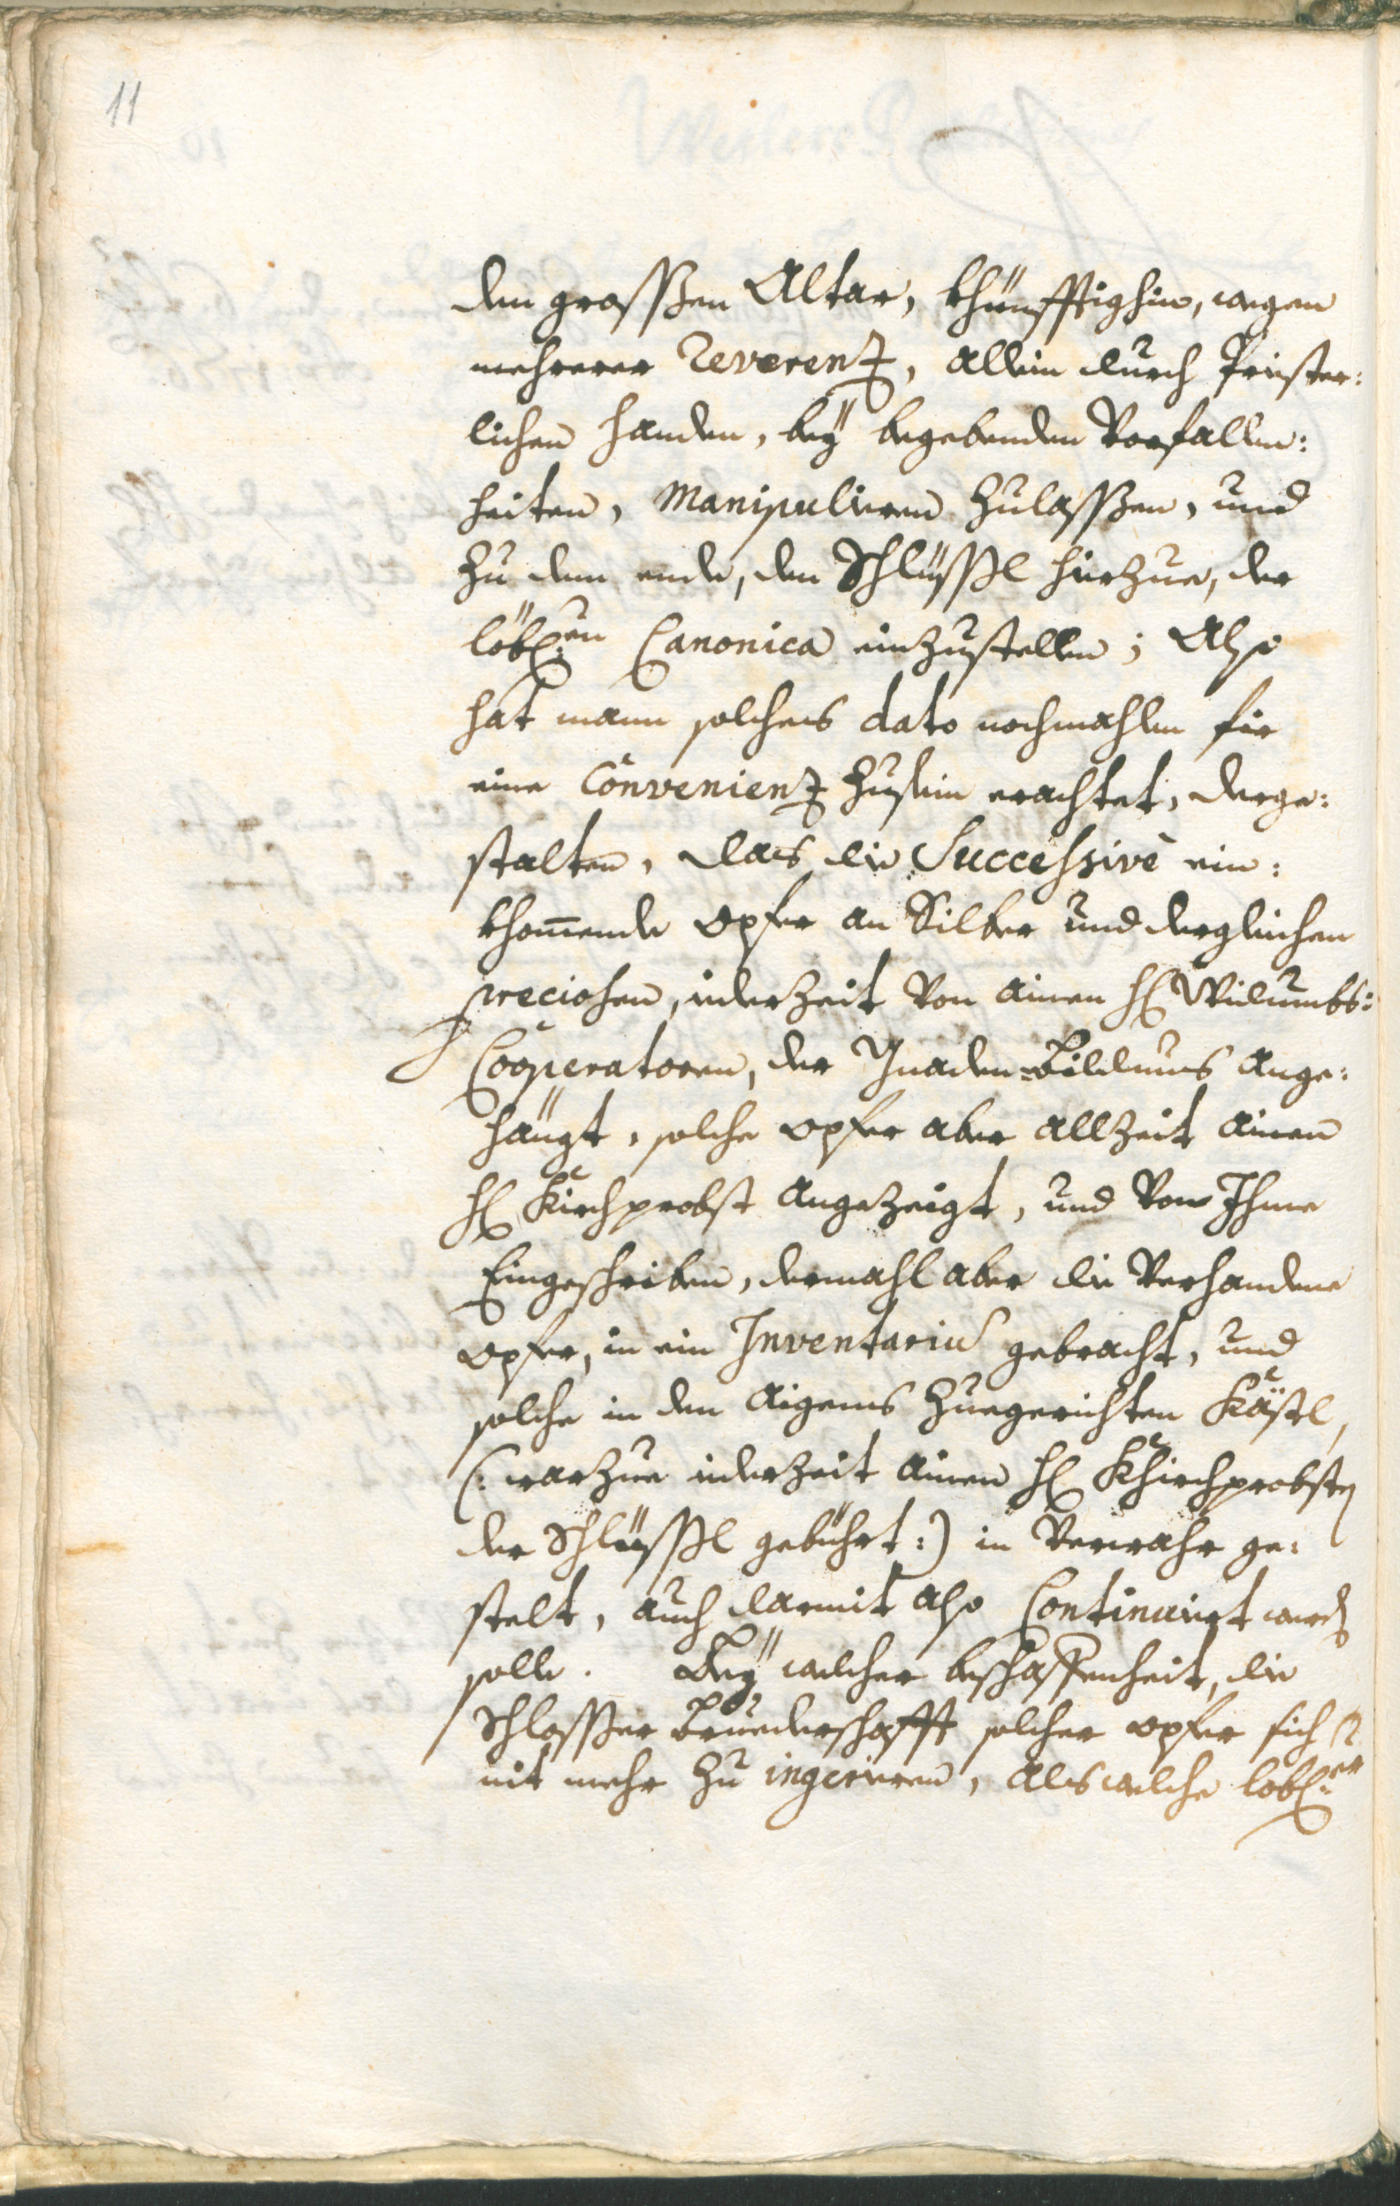 11
dem grossen Altar, khünfftighin, wegen
mehrerer Reverenz, allein durch Priester:
lichen handen, bey begebenden Vorfallen:
heiten, Manipulieren zulassen, und
zu dem ende, den Schlüssl hierzue, der
löbl:en Canonica einzustellen; Also
hat mann solches dato nochmahlen für
eine Convenienz zusein erachtet, derge:
stalten, das die Successivè ein:
khomende opfer an Silber und dergleichen
preciosen, iederzeit von ainen H: Widumbs:
Cooperatoren, der Gnaden-Bildnus ange:
hängt, solche opfer aber allzeit ainen
H: Kirchprobst angezeigt, und von Ihme
Eingeschriben, dermahl aber die Verhandene
opfer, in ein Inventarium gebracht, und
solche in den aigens zuegerichten Kästl,
(: warzue iederzeit ainen H: Khirchprobsten
der Schlüssl gebührt :) in Verwahr ge:
stelt, auch darmit also Continuiert werden
solle. Bey welcher beschaffenheit, die
Schlosser Bruederschafft solcher opfer sich
nit mehr zu ingerieren, als welche löbl:er